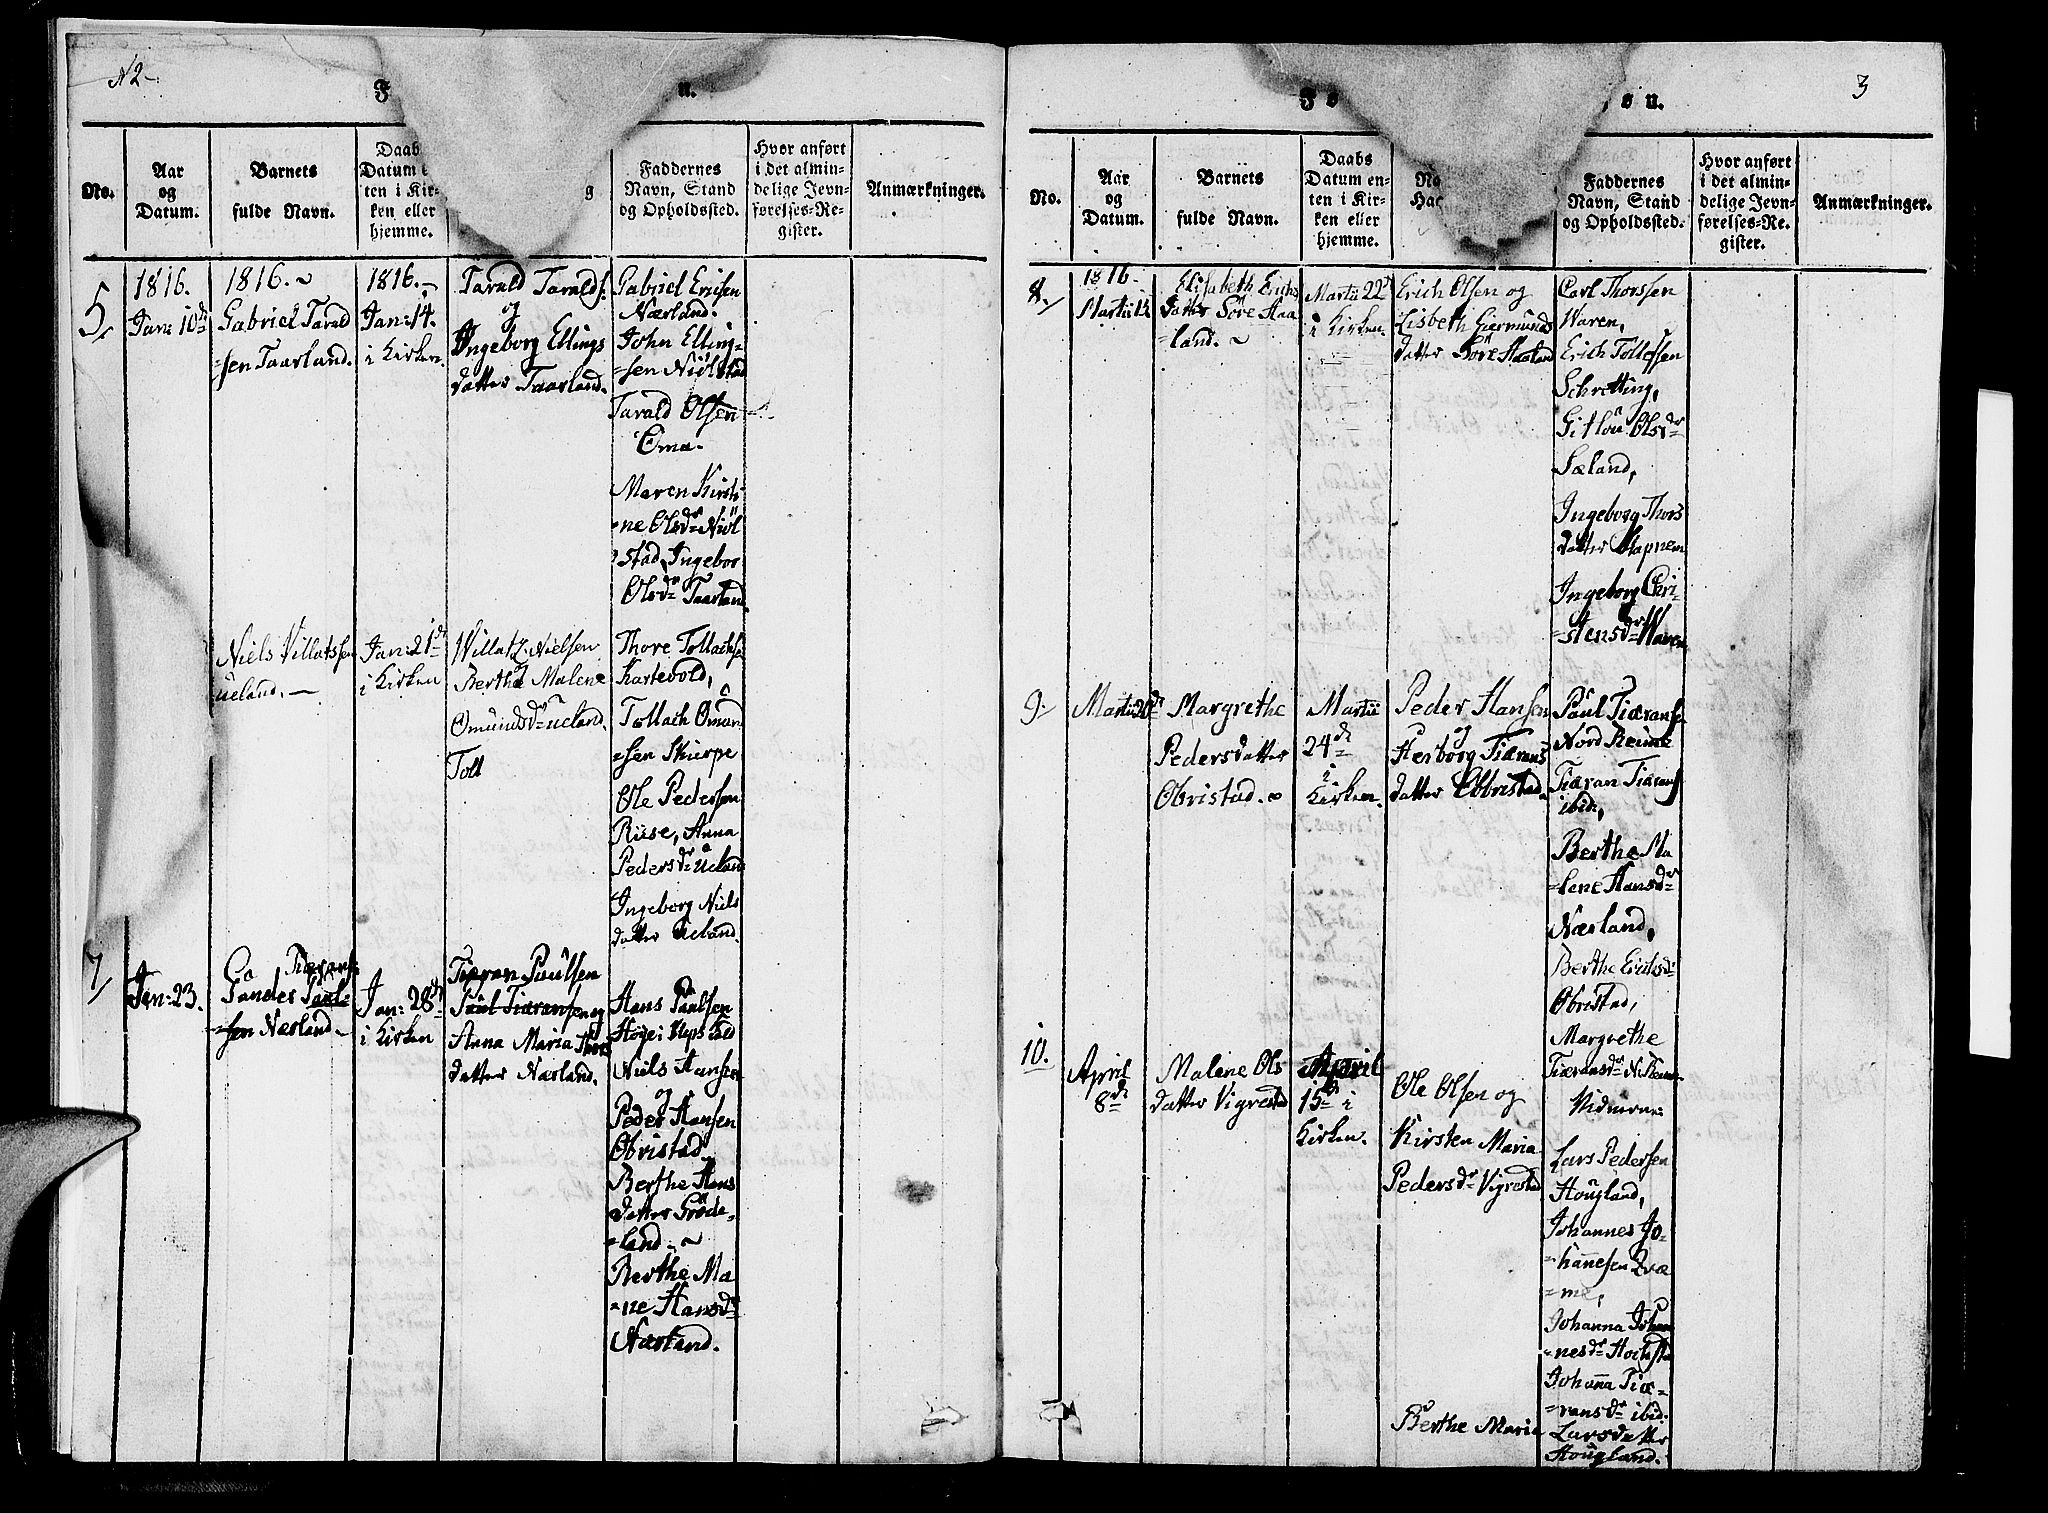 N 2-
F
n.
No.
Aar
og
Datum.
Barnets
fulde Navn.
Daabs
Datum e
ten i Kir-
ken eller
hjemme.
g
Faddernes
Navn, Stand
og Opholdssted.
Hvor anført
i det almin-
delige Jevn-
førelses-Re-
gister.
Anmærkninger.
5,
1816.
Jan: 10de
1816. ~
Gabriel Tarald
=sen Taarland.
1816. ~
Jan: 14.
i Kirken.
Tarald Taralds:
og
Ingeborg Ellings
datter Taarland.
Gabriel Ericsen
Nærland.
John Elling=
=sen Niölstad
Tarald Olsen
Oma.
Maren Kirsti
=ne Olsdr Niöl
stad, Ingebor
Olsdr Taarland
Niels Villatssen
Ueland. —
Jan: 21de
i Kirken
Willatz Nielsen
og
Berthe Malene
Omundsdr Ueland.
Tolt
Thore Tollachse
Kartevold,
Tollach Omund
=sen Skierpe
Ole Pedersen
Riise, Anna
Pedersdr Ueland
Ingeborg Niels
datter Ueland.
7,
Jan: 23.
Ga Tiærans
Gandes Paul=
=sen Nærland.
Jan: 28de
i Kirken
Tiæran Paulsen
Paul Tiæransen og
Anna Maria Thors
datter Nærland.
Hans Paulsen
Höge i Kleps Gield
Niels Hansen
og
Peder Hansen
Obristad
Berthe Hans
datter Gröde=
=land. ~
Berthe Ma
=ne Hansdr
Nærland.
3
F ø
s n.
No.
Aar
og
Datum.
Barnets
fulde Navn.
Daabs
Datum en-
ten i Kir-
ken eller
hjemme.
Na
Ha
Faddernes
Navn, Stand
og Opholdssted.
Hvor anført
i det almin-
delige Jevn-
førelses-Re-
gister.
Anmærkninger.
8.
1816.
Martii 15
Elisabeth Erichs
datter Söre Haa
=land. ~
Martii 22d
i Kirken.
Erich Olsen og
Lisbeth Giermunds
datter Söre Haaland
Carl Thorssen
Waren,
Erich Tollefsen
Schretting,
Gitlöu Olsdr
Sæland,
Ingeborg Thors
datter Hapnem
Ingeborg Chri=
=stensdr Waren
9.
Martii 20de
Margrethe
Pedersdatter
Obristad. ~
Martii
24de
i
Kirken.
Peder Hansen
og
Herborg Tiærans
datter Obristad.
Paul Tiæranse
Nord Reime
Tiæran Tiærans
ibid,
Berthe Ma
=lene Hansdr
Nærland,
Berthe Erichsdr
Obristad,
Margrethe
Tiæransdr N. Reime
10.
April
8de
Malene Ols
datter Vigrestad
April
15de i
Kirken.
Ole Olsen og
Kirsten Maria
Pedersdr Vigrestad
Vidnerne:
Lars Pedersen
Hougland,
Johannes Jo=
=hannesen Qvæ
=me,
Johanna Johan
=nesdr
Johanna Tiæ=
=ransdr ibid.
Berthe Maria
Larsdatter
Hougland.